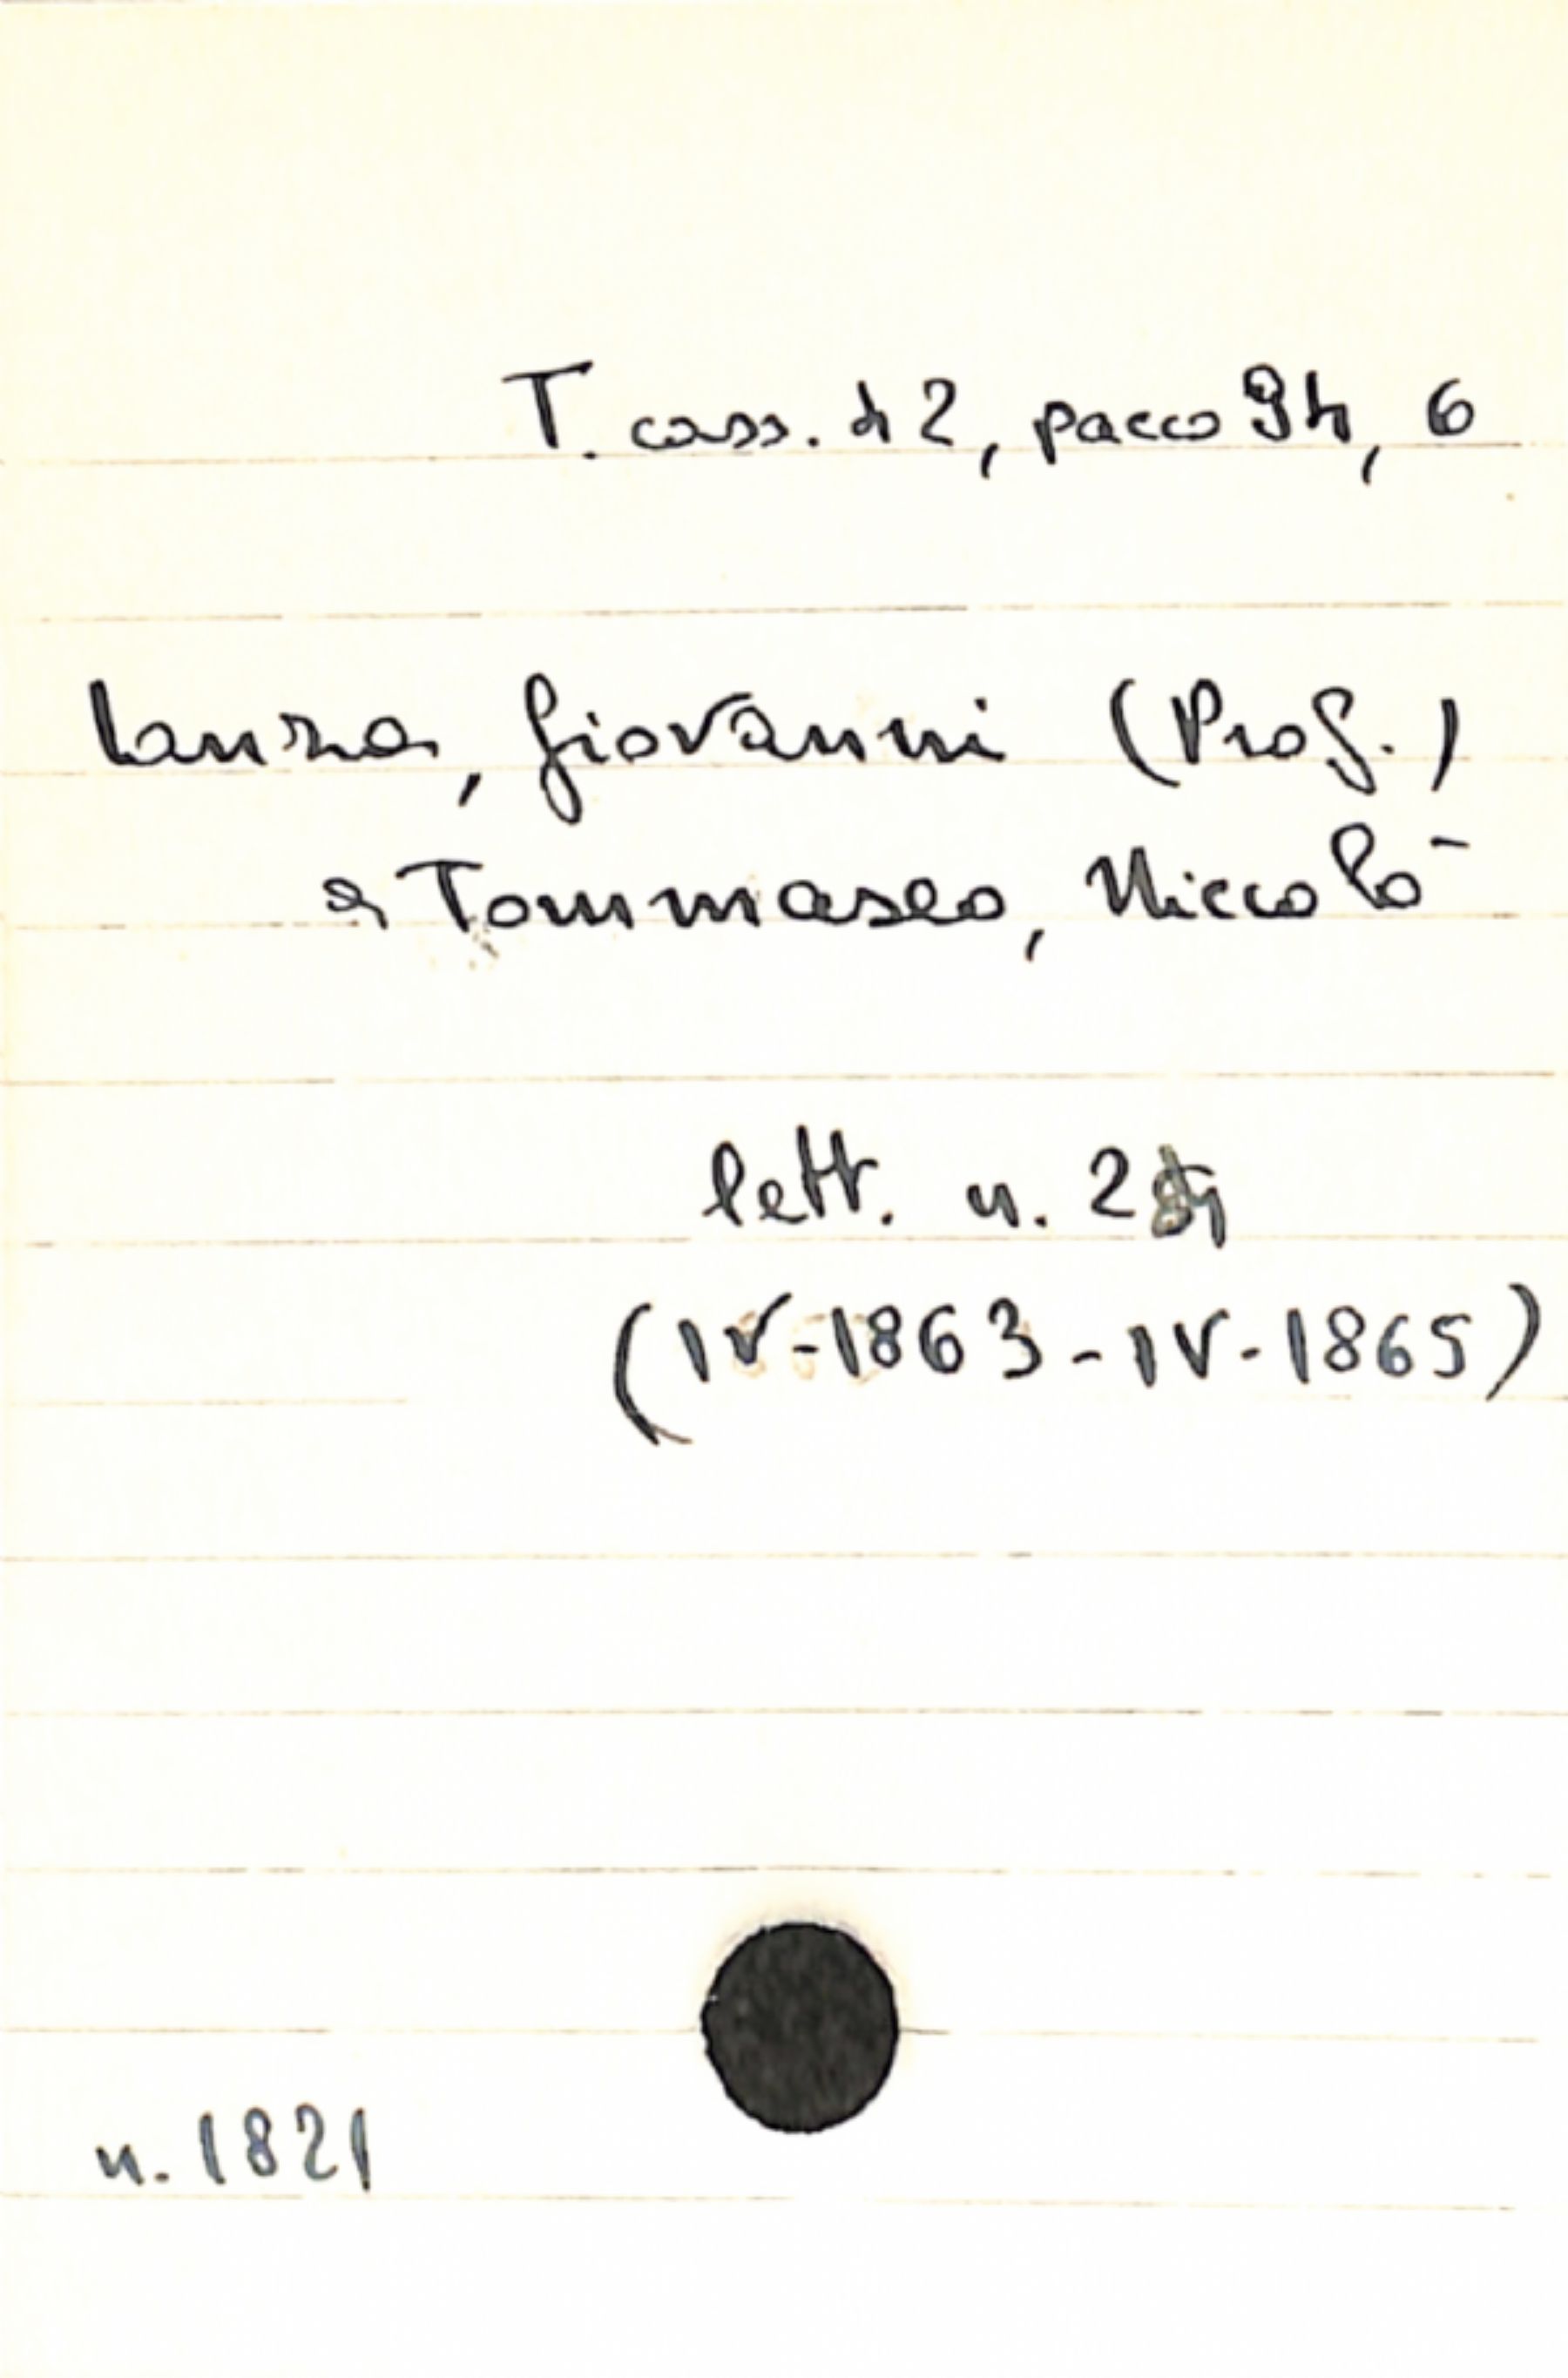 T. cass. 42, pacco 94, 6
Lanza, Giovanni (Prof.)
a Tommaseo, Niccolò
lett. n.
(IV-1863-IV-1865)
n. 1821